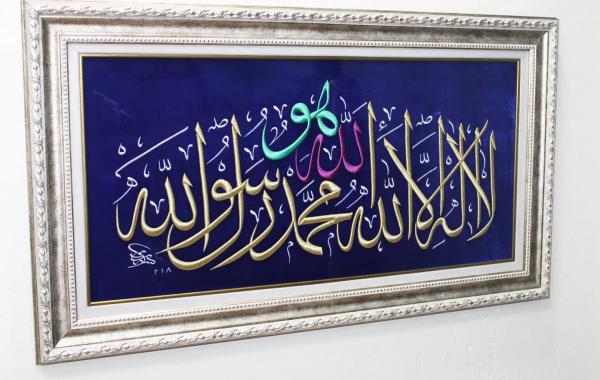 هو
الله
لا إله إلا الله محمد رسول الله
٢١٨